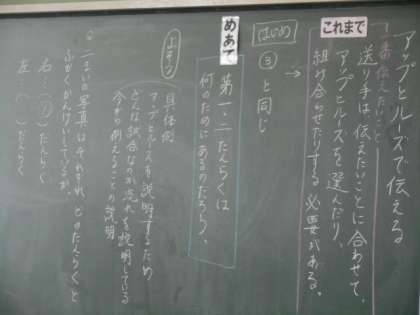 アップとルーズで伝える
これまで
一番伝えたいこと
送り手は伝えたいことに合わせて、
アップとルーズを選んだり、
組み合わせたりする必要がある。
→
はじめ
③と同じ
めあて
第一・二だんらくは
何のためにあるのだろう。
よそう
具体例
アップとルーズを説明するため
どんな試合なのか流れを説明している
今から例えることの説明
二まいの写真はそれぞれ、どのだんらくと
ふかくかんけいしているか。
右…( )だんらく
左…( )だんらく